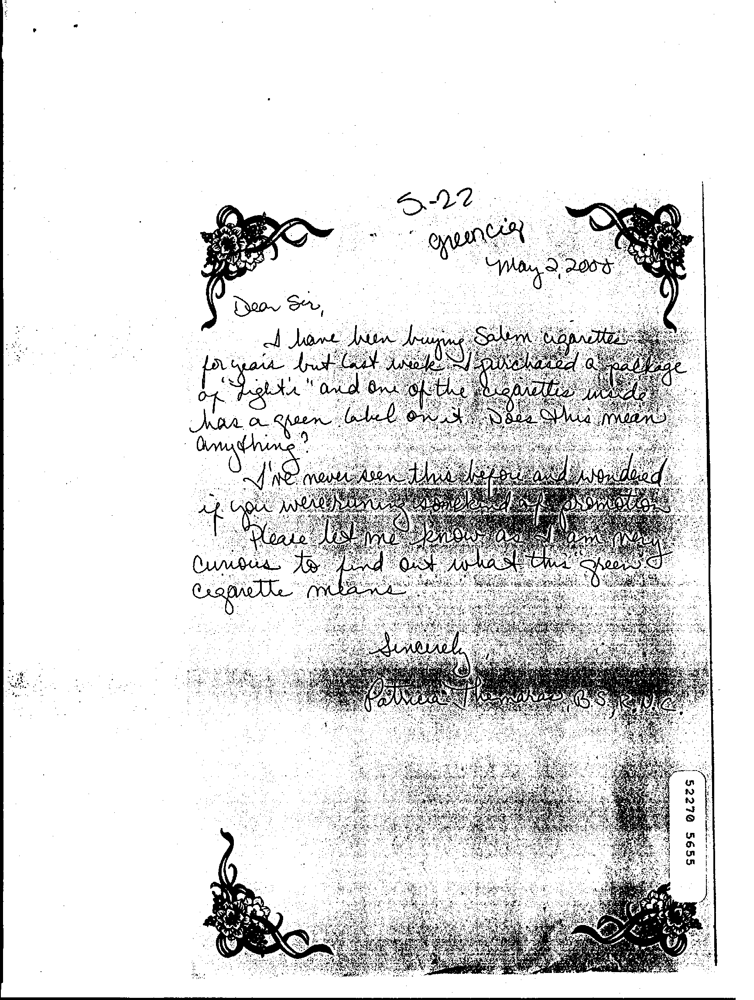 5-22
green cig
May 2, 2000
Dear Sir,
I have been buying Salem cigarettes
for years but last week I purchased a package
of "Light's" and one of the cigarettes inside
has a green label on it. Does this mean
anything?
I've never seen this before and wondered
if you were runing somekind of promotion
Please let me know as I am very
curious to find out what this "green"
cigarette means.
Sincerely,
Patricia B.S., R.N.C.
52270 5655